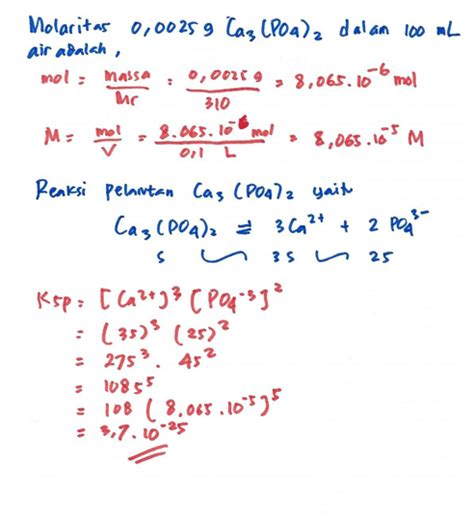 Molaritas 0,0025 g Ca₃(PO₄)₂ dalam 100 mL
air adalah,
mol = massa/Mr = 0,0025 g/310 = 8,065.10⁻⁶ mol
M = mol/V = 8.065.10⁻⁶ mol/0,1 L = 8,065.10⁻⁵ M
Reaksi pelarutan Ca₃(PO₄)₂ yaitu
Ca₃(PO₄)₂ ⇌ 3Ca²⁺ + 2 PO₄³⁻
s 3s 2s
Ksp = [Ca²⁺]³ [PO₄⁻³]²
= (3s)³ (2s)²
= 27s³ . 4s²
= 108s⁵
= 108 (8,065.10⁻⁵)⁵
= 3,7.10⁻²⁵